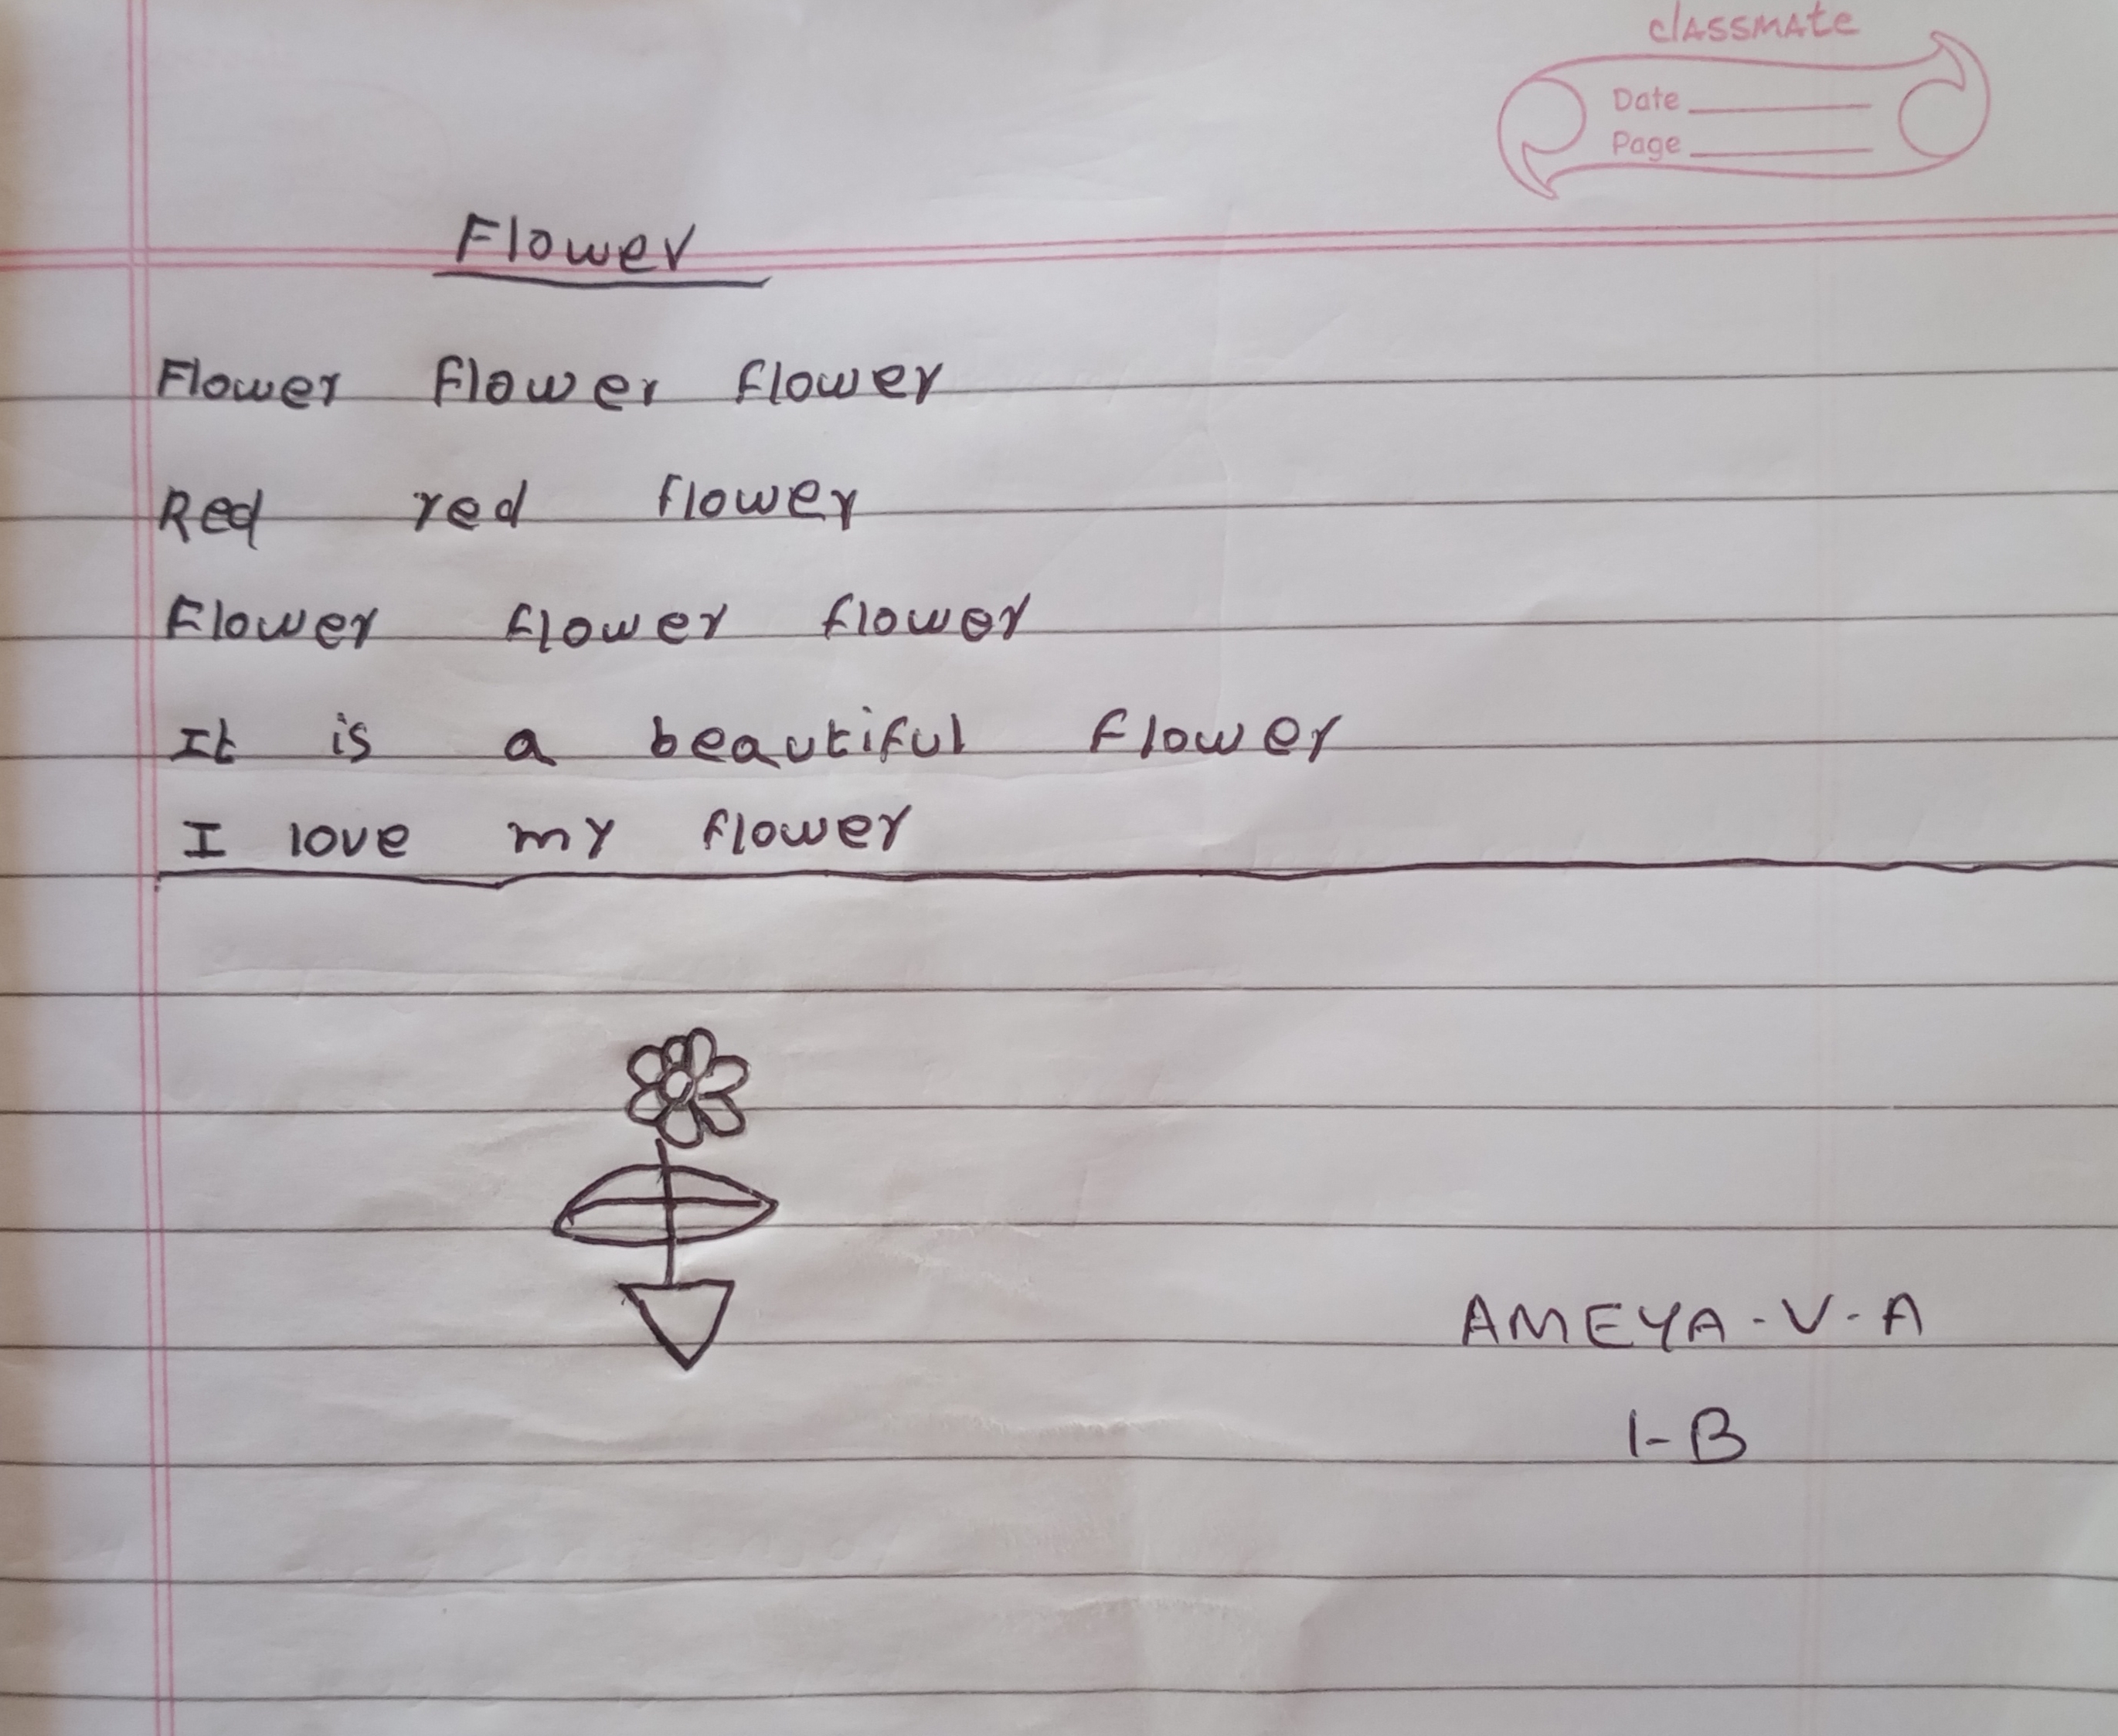 classmate
Date
Page
Flower
Flower flower flower
Red red flower
Flower flower flower
It is a beautiful flower
I love my flower
AMEYA-V-A
1-B